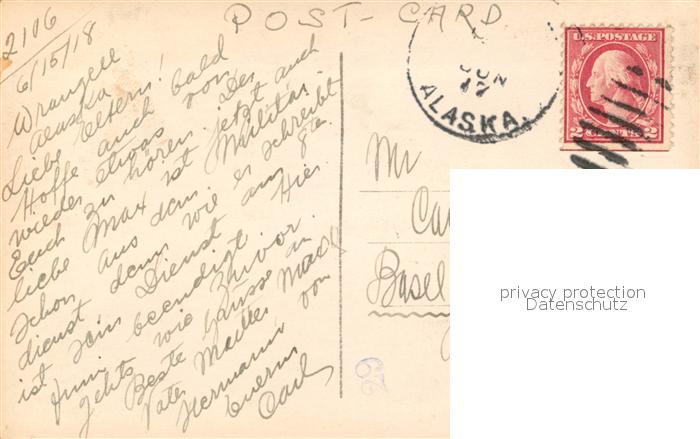 2106
6/15/18
POST-CARD
Wrangell
Alaska
Liebe Eltern!
Hoffe auch bald
wieder etwas von
Euch zu hören. Der
liebe Max ist jetzt auch
schon aus dem Militär
dienst denn wie er schreibt
ist sein Dienst am 8ta
Juni beendigt. Hier
gehts wie zuvor.
Beste Grüsse an
Vater Mutter Max
Hermann von
Euerm
Carl
JUN
17
ALASKA.
U.S. POSTAGE
2 CENTS 2
Mr
Basel
29
privacy protection
Datenschutz